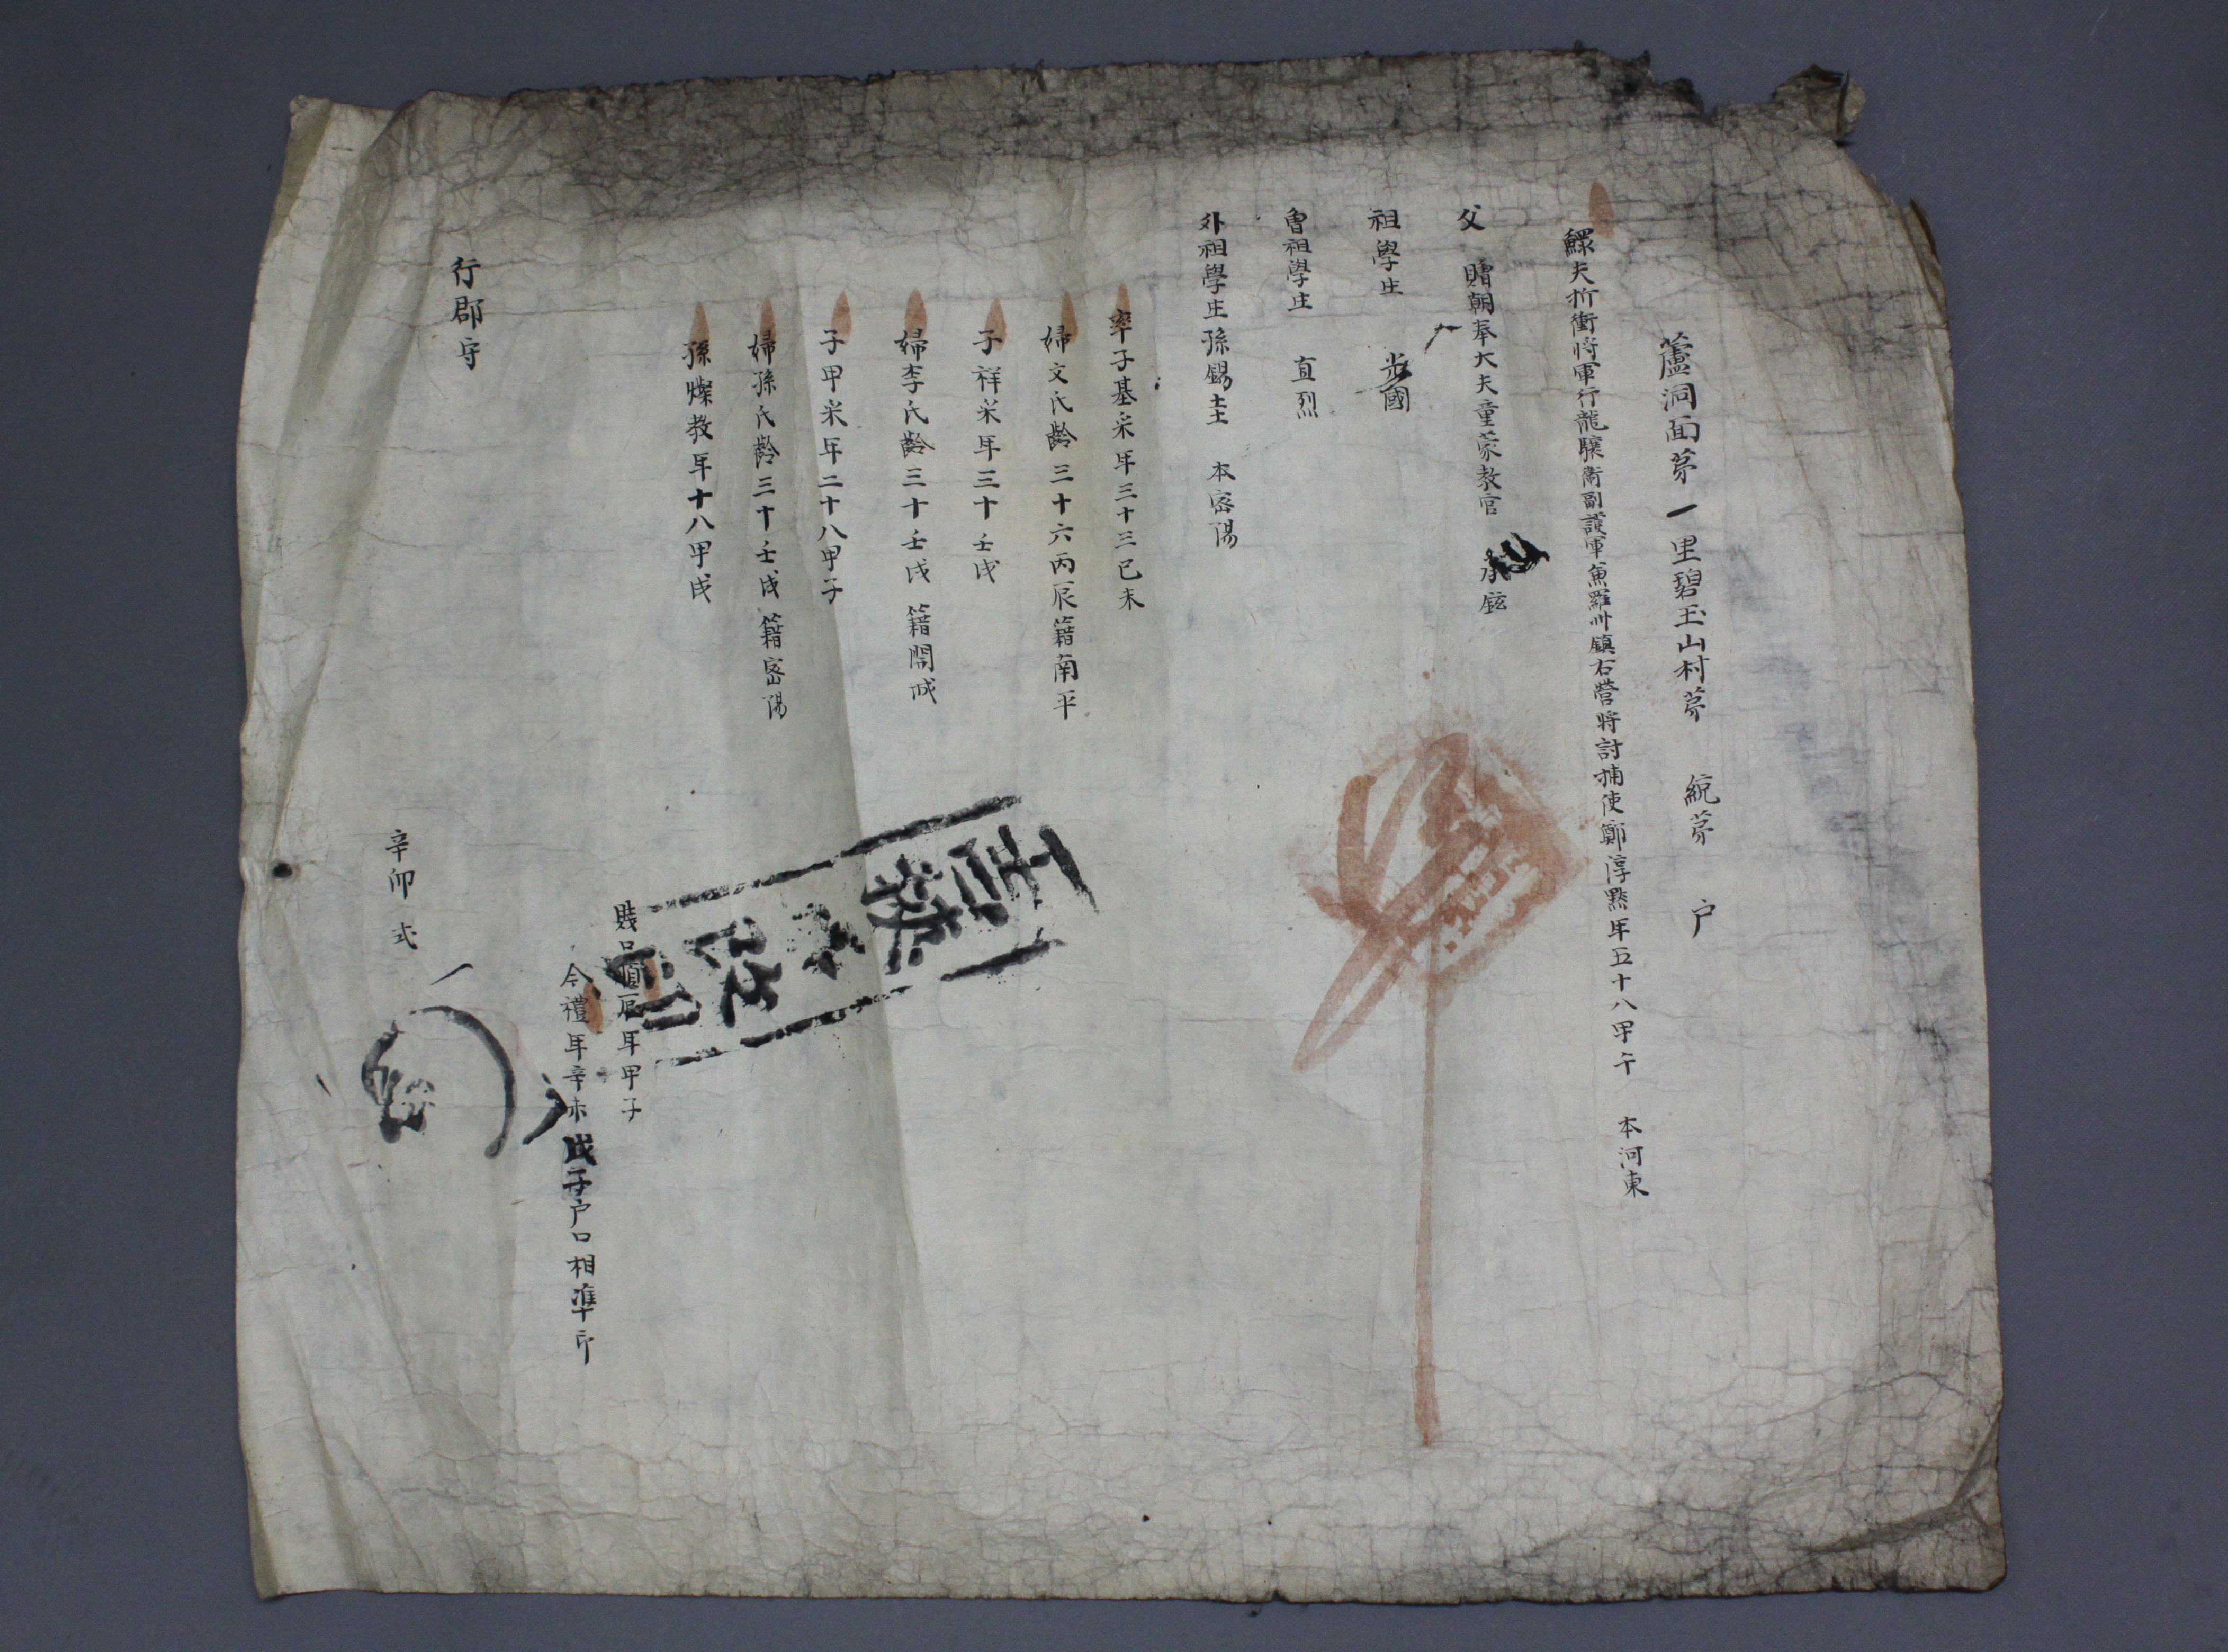 蘆洞面苐一里碧玉山村苐 統苐 户
鰥夫折衝将軍行龍驤衛副護軍兼羅州鎮右營将討捕使鄭淳黙年五十八甲午 本河東
父 贈朝奉大夫童蒙教官 承鉉
祖學生 光國
曾祖學生 直烈
外祖學生孫錫圭 本密陽
率子基采年三十三己未
婦文氏齡三十六丙辰籍南平
子祥采年三十壬戌
婦李氏齡三十壬戌籍開城
子甲采年二十八甲子
婦孫氏齡三十壬戌籍密陽
孫燦教年十八甲戌
賤口 辰年甲子
今禮年辛未戊子户口相凖印
行郡守
辛卯式